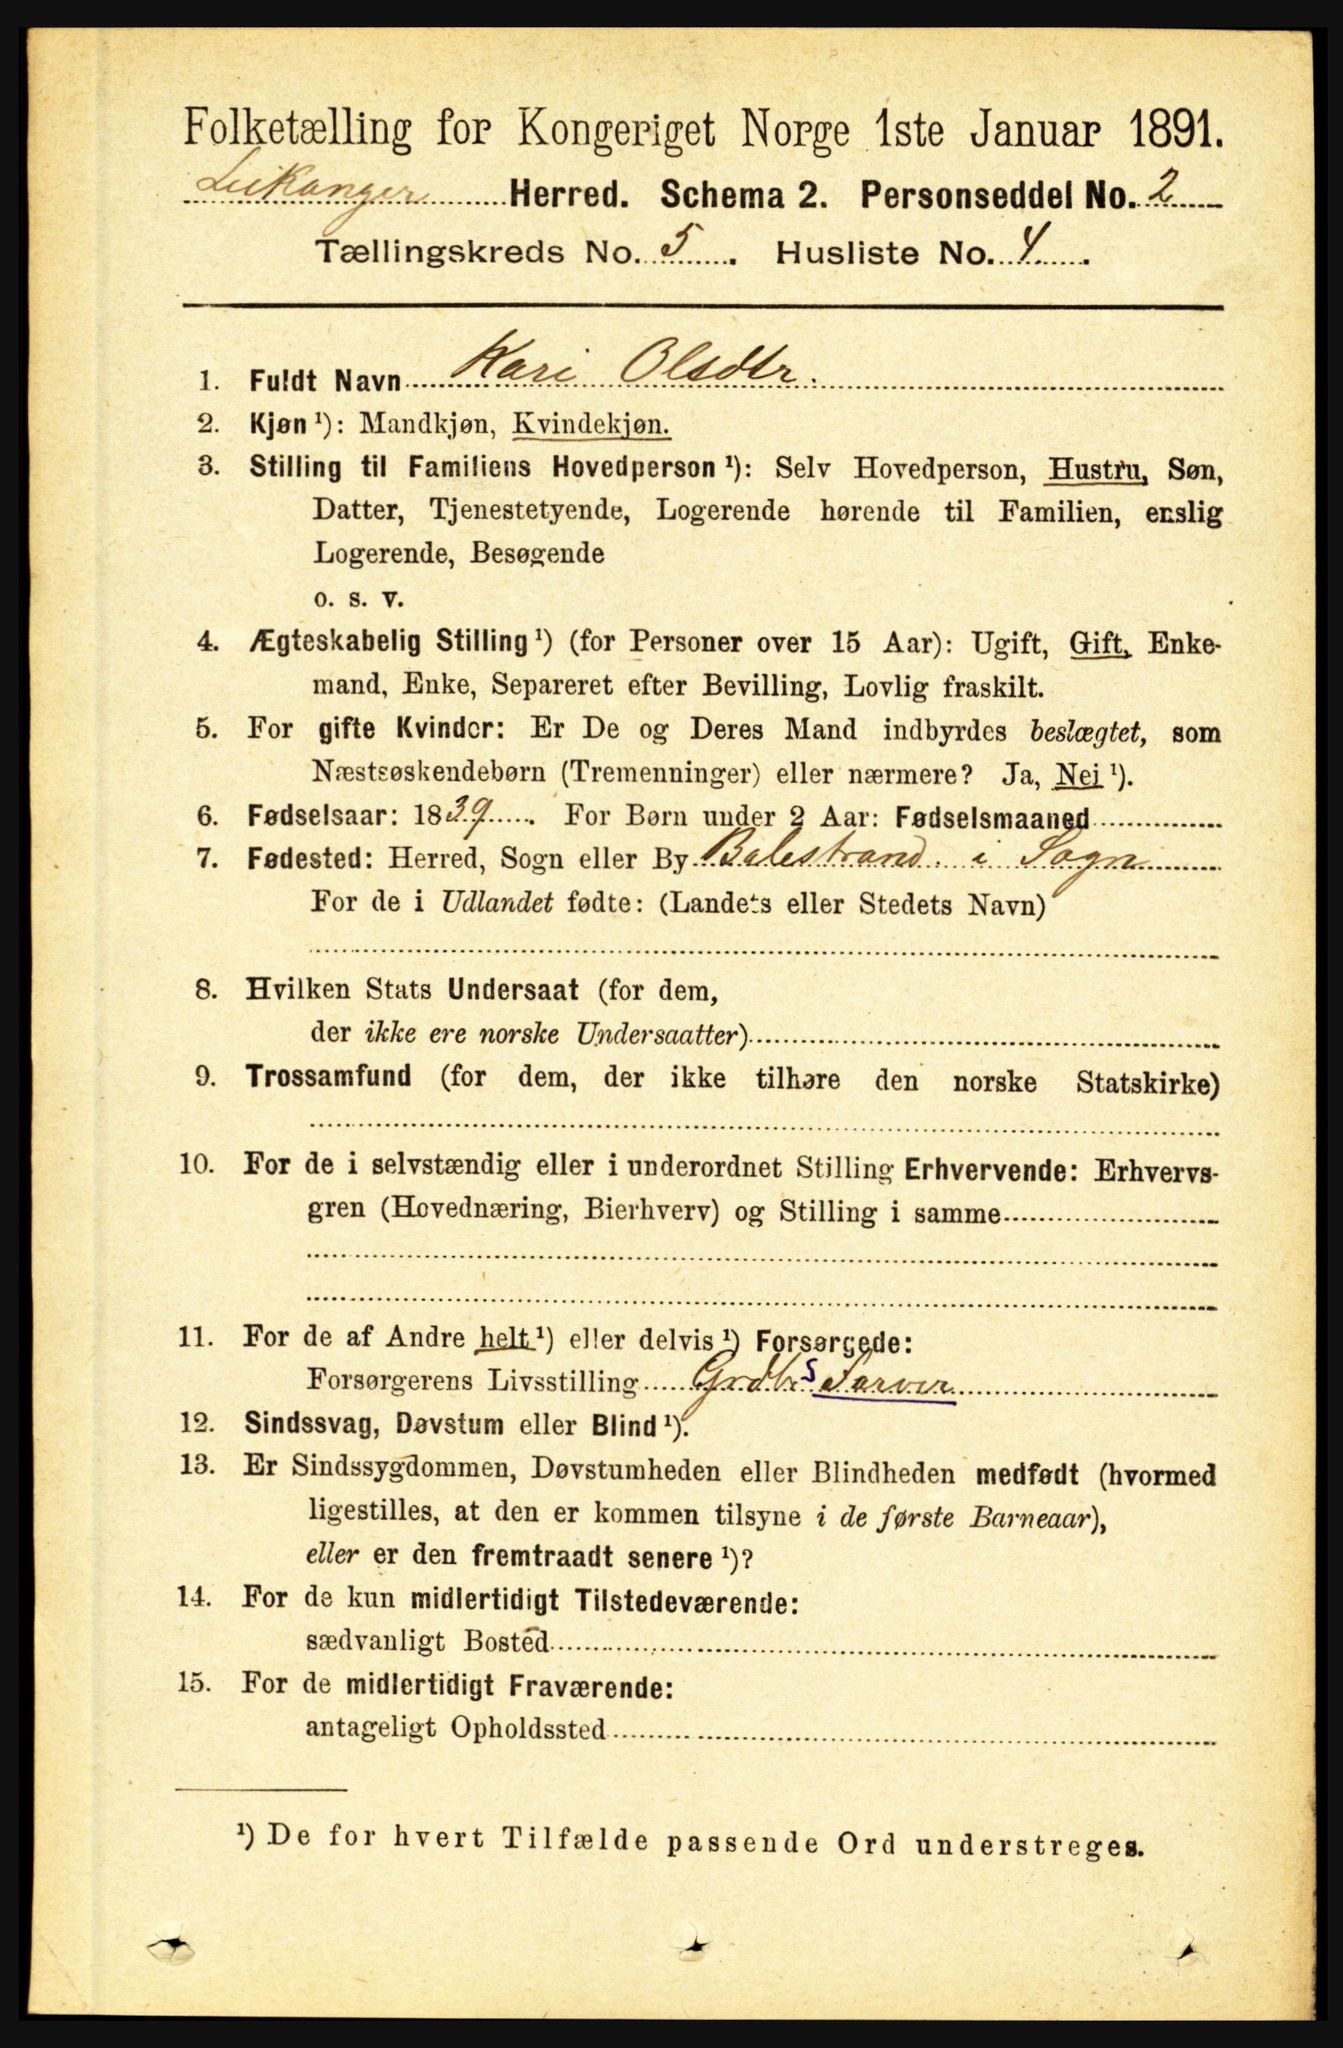 Folketælling for Kongeriget Norge 1ste Januar 1891.
Leikanger Herred. Schema 2. Personseddel No. 2
Tællingskreds No. 5. Husliste No. 4.
1. Fuldt Navn Kari Olsdtr.
2. Kjøn ¹): Mandkjøn, Kvindekjøn.
3. Stilling til Familiens Hovedperson ¹): Selv Hovedperson, Hustru, Søn,
Datter, Tjenestetyende, Logerende hørende til Familien, enslig
Logerende, Besøgende
o. s. v.
4. Ægteskabelig Stilling ¹) (for Personer over 15 Aar): Ugift, Gift, Enke-
mand, Enke, Separeret efter Bevilling, Lovlig fraskilt.
5. For gifte Kvinder: Er De og Deres Mand indbyrdes beslægtet, som
Næstsøskendebørn (Tremenninger) eller nærmere? Ja, Nei ¹).
6. Fødselsaar: 1839. For Børn under 2 Aar: Fødselsmaaned
7. Fødested: Herred, Sogn eller By Balestrand i Sogn
For de i Udlandet fødte: (Landets eller Stedets Navn)
8. Hvilken Stats Undersaat (for dem,
der ikke ere norske Undersaatter)
9. Trossamfund (for dem, der ikke tilhøre den norske Statskirke)
10. For de i selvstændig eller i underordnet Stilling Erhvervende: Erhvervs-
gren (Hovednæring, Bierhverv) og Stilling i samme
11. For de af Andre helt ¹) eller delvis ¹) Forsørgede:
Forsørgerens Livsstilling Grdbr s
12. Sindssvag, Døvstum eller Blind ¹).
13. Er Sindssygdommen, Døvstumheden eller Blindheden medfødt (hvormed
ligestilles, at den er kommen tilsyne i de første Barneaar),
eller er den fremtraadt senere ¹)?
14. For de kun midlertidigt Tilstedeværende:
sædvanligt Bosted
15. For de midlertidigt Fraværende:
antageligt Opholdssted
¹) De for hvert Tilfælde passende Ord understreges.